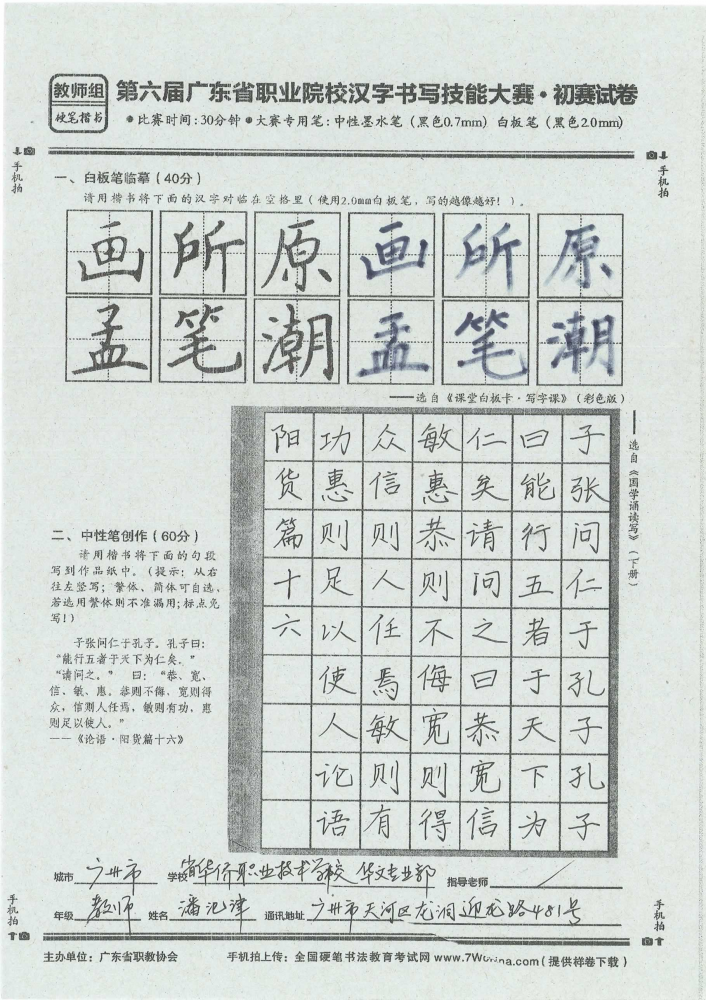 教师组
硬笔楷书
第六届广东省职业院校汉字书写技能大赛·初赛试卷
●比赛时间:30分钟●大赛专用笔:中性墨水笔(黑色0.7mm) 白板笔(黑色2.0mm)
手机拍
手机拍
一、白板笔临摹(40分)
请用楷书将下面的汉字对临在空格里(使用2.0mm白板笔,写的越像越好!)。
画所原画所原
孟笔潮孟笔潮
——选自《课堂白板卡·写字课》(彩色版)
——选自《国学诵读写》(下册)
二、中性笔创作(60分)
请用楷书将下面的句段
写到作品纸中。(提示:从右
往左竖写;繁体、简体可自选,
若选用繁体则不准漏用;标点免
写!)
子张问仁于孔子。孔子曰:
“能行五者于天下为仁矣。”
“请问之。”曰:“恭、宽、
信、敏、惠。恭则不侮,宽则得
众,信则人任焉,敏则有功,惠
则足以使人。”
——《论语·阳货篇十六》
子张问仁于孔子孔子
曰能行五者于天下为
仁矣请问之曰恭宽信
敏惠恭则不侮宽则得
众信则人任焉敏则有
功惠则足以使人论语
阳货篇十六
城市 广州市 学校 省华侨职业技术学校 华文专业部 指导老师
年级 教师 姓名 通讯地址 广州市天河区龙洞迎龙路481号
手机拍
手机拍
主办单位:广东省职教协会 手机拍上传:全国硬笔书法教育考试网(提供样卷下载)